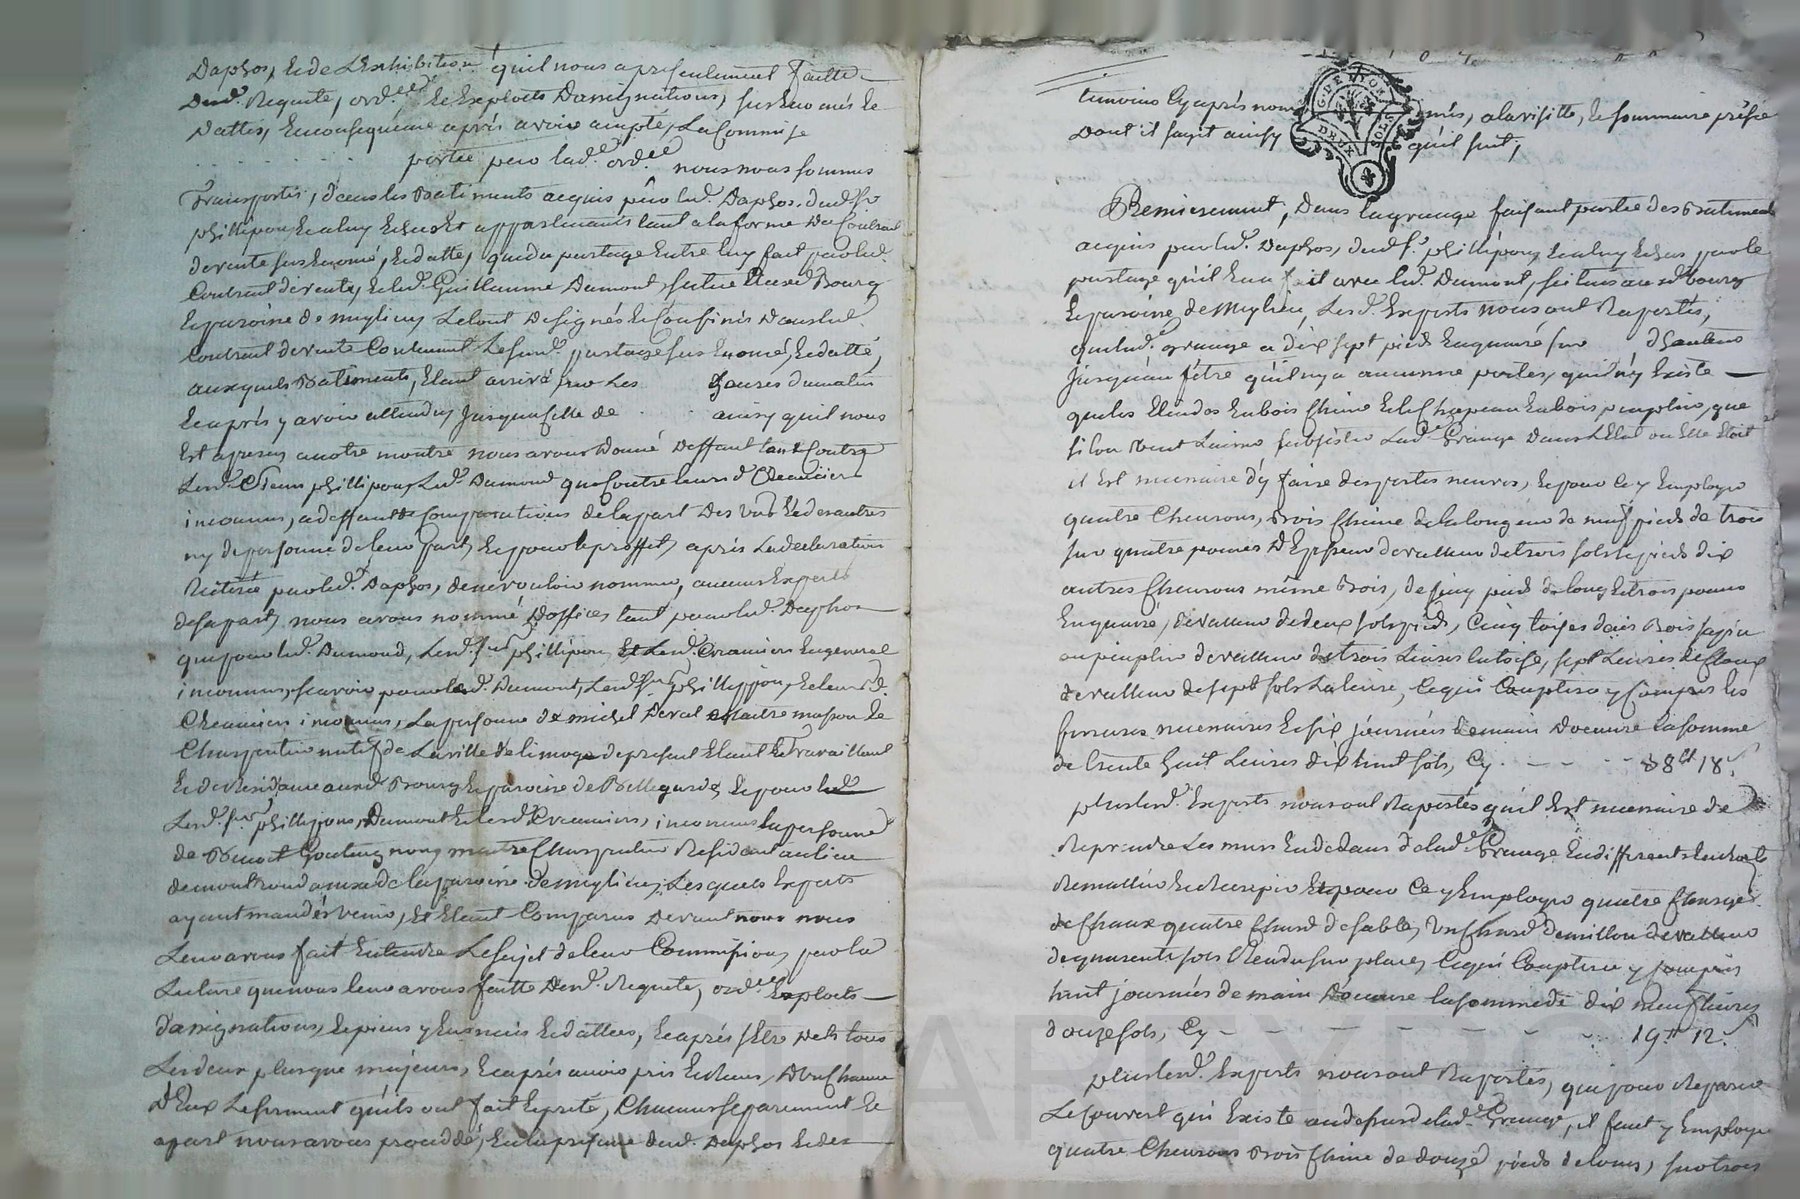 Daphos, Et de L'Exhibition qu'il nous a presentement faitte
Dud. Requete, ord.ce Et Exploits D'assignations, sus Enoncés Et
Dattés, En consequence après avoir accepté, La Commise
portée par lad.e ord.ce nous nous sommes
Transportés, dans les Batiments acquis par led. Daphos, dud. Sr
phillipon, Ecaluy Echus Et appartenants tant a la forme Du Contrat
de vente sus Enoncé, Et datté, que du partage Entre luy fait par led.
Contrant de vente, Et led. Guillaume Dumont, situé Aud. Bourg
Et paroisse de Meylieu, Le tout Designés Et Confinés Dans led.
Contrant de vente Contenant Le sud. partage sus Enoncé, Et datté,
auxquels Batiments, Etant arrivé sur Les heures du matin
Et après y avoir attendu, Jusqu'a celle de ainsy qu'il nous
Est aparu, a notre montre nous avons Donné Deffaut tant Contre
Led. Sieur phillipon, Led. Dumond, que Contre leurs d. Creanciers
inconnus, a deffaut de Comparutions de la part Des uns Et des autres
ny de personne de leur part, Et pour le proffit, après La declaration
Réiterée par led. Daphos, de ne vouloir nommer, aucuns Experts
de sa part, nous avons nommé D'offices tant pour led. Daphos
que pour led. Dumond, Led. Sieur phillipon, Et Lesd. Creanciers En general
inconnus, scavoir pour led. Dumont, Led. Sr phillippon, Et leurs d.
Creanciers inconnus, La personne de michel Deval Maitre masson Et
Charpentier natif de La ville de limoge de present Etant Et Travaillant
Et de Residance aud. Bourg Et paroisse de Bellegarde, Et pour led.
Led. Sr phillippon, Dumont Et lesd. Creanciers, inconnus la personne
de Benoit maitre Charpentier Residant au lieu
de montrond annexe de la paroisse de meylieu, Lesquels Experts
ayant mandés venir, Et Etant Comparus Devant nous nous
Leur avons fait Entendre Le sujet de leur Commission, par la
Lecture que nous leur avons faitte Desd. Requete, ord.ces Exploits
d'assignations, Et pieces y Enoncés Et dattées, Et après s'Etre dits tous
Les deux plus que majeurs, Et après avoir pris Et recu, D'un Chacun
D'Eux Le serment qu'ils ont fait Et preté, Chacun separement Et
apart nous avons procedé, En la presence dud. Daphos Et des
temoins Cy après nommés, a la visitte, Et sommaire prisée
Dont il s'agit ainsy qu'il suit,
G. DE LYON
DEUX SOLS
Premierement, Dans la grange faisant partie des Batiments
acquis par led. Daphos, dud. Sr. phillipon, Ecaluy Echus par le
partage qu'il En a fait avec led. Dumont, scitués aud. bourg
Et paroisse de Meylieu, Lesd. Experts nous ont Raportés,
que lad. grange a dix sept pieds En quarré sur d'hauteur
Jusqu'au fêtre qu'il n'y a aucune portes, qu'il n'y Existe
que les Etendos En bois Chêne Et le Chapeau En bois, peuplier, que
si l'on veut Laisser subsister Lad.e Grange Dans L'Etat ou Elle Etoit
il Est necessaire d'y faire des portes neuves, Et pour Ce y Employer
quatre Chevrons, Bois Chêne de la longeur de neuf pieds de trois
sur quatre pouces D'Epesseur de valleur de trois sols le pied, dix
autres Chevrons même Bois, de Cinq pieds de long Et trois pouces
En quarré, de valleur de deux sols pied, Cinq toises d'ais Bois sapin
ou peuplier de valleur de trois Livres la toise, sept Livres de Cloux
de valleur de sept sols La livre, Ce qui Comptera y Compris les
ferrures necessaires Et six journées de main D'oeuvre La somme
de trente huit Livres dix huit sols, Cy - - - 38tt 18s
plus lesd. Experts nous ont Raportés qu'il Est necessaire de
Reprendre Les murs En dedans de lad.e Grange En differents Endroits
Remettre Et Recrepir Et pour Ce y Employer quatre Charges
de Chaux quatre Chard de sable, Un Chard de moillon de valleur
de quarente sols Rendu sur place, Ce qui Comptera y Compris
huit journées de main D'oeuvre la somme de dix neuf livres
douze sols, Cy - - - - - - - 19tt 12s
plus lesd. Experts nous ont Raportés, que pour Reparer
Le Couvert qui Existe au dessus de lad.e Grange, il faut y Employer
quatre Chevrons Bois Chêne de douze pieds de long, sur trois